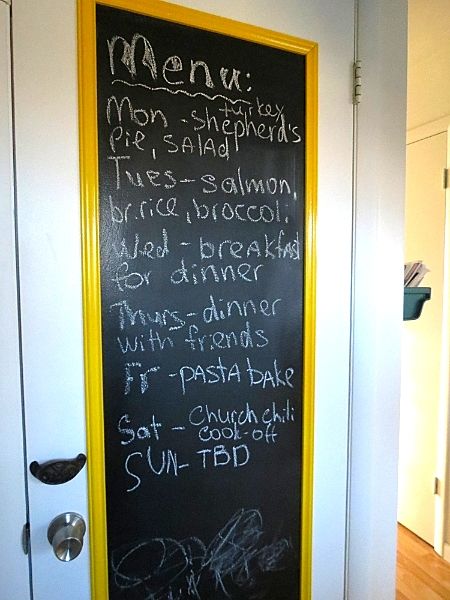 Menu:
turkey
Mon - shepherd's
pie, SALAD
Tues - salmon,
br.rice, broccoli
Wed - breakfast
for dinner
Thurs - dinner
with friends
Fr - PASTA bake
Sat - Church chili
cook-off
SUN - TBD